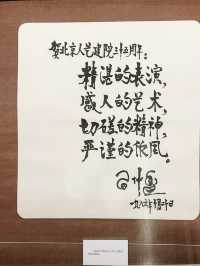 贺北京人艺建院三十五周年:
精湛的表演,
感人的艺术,
切磋的精神,
严谨的作风。
一九八七年